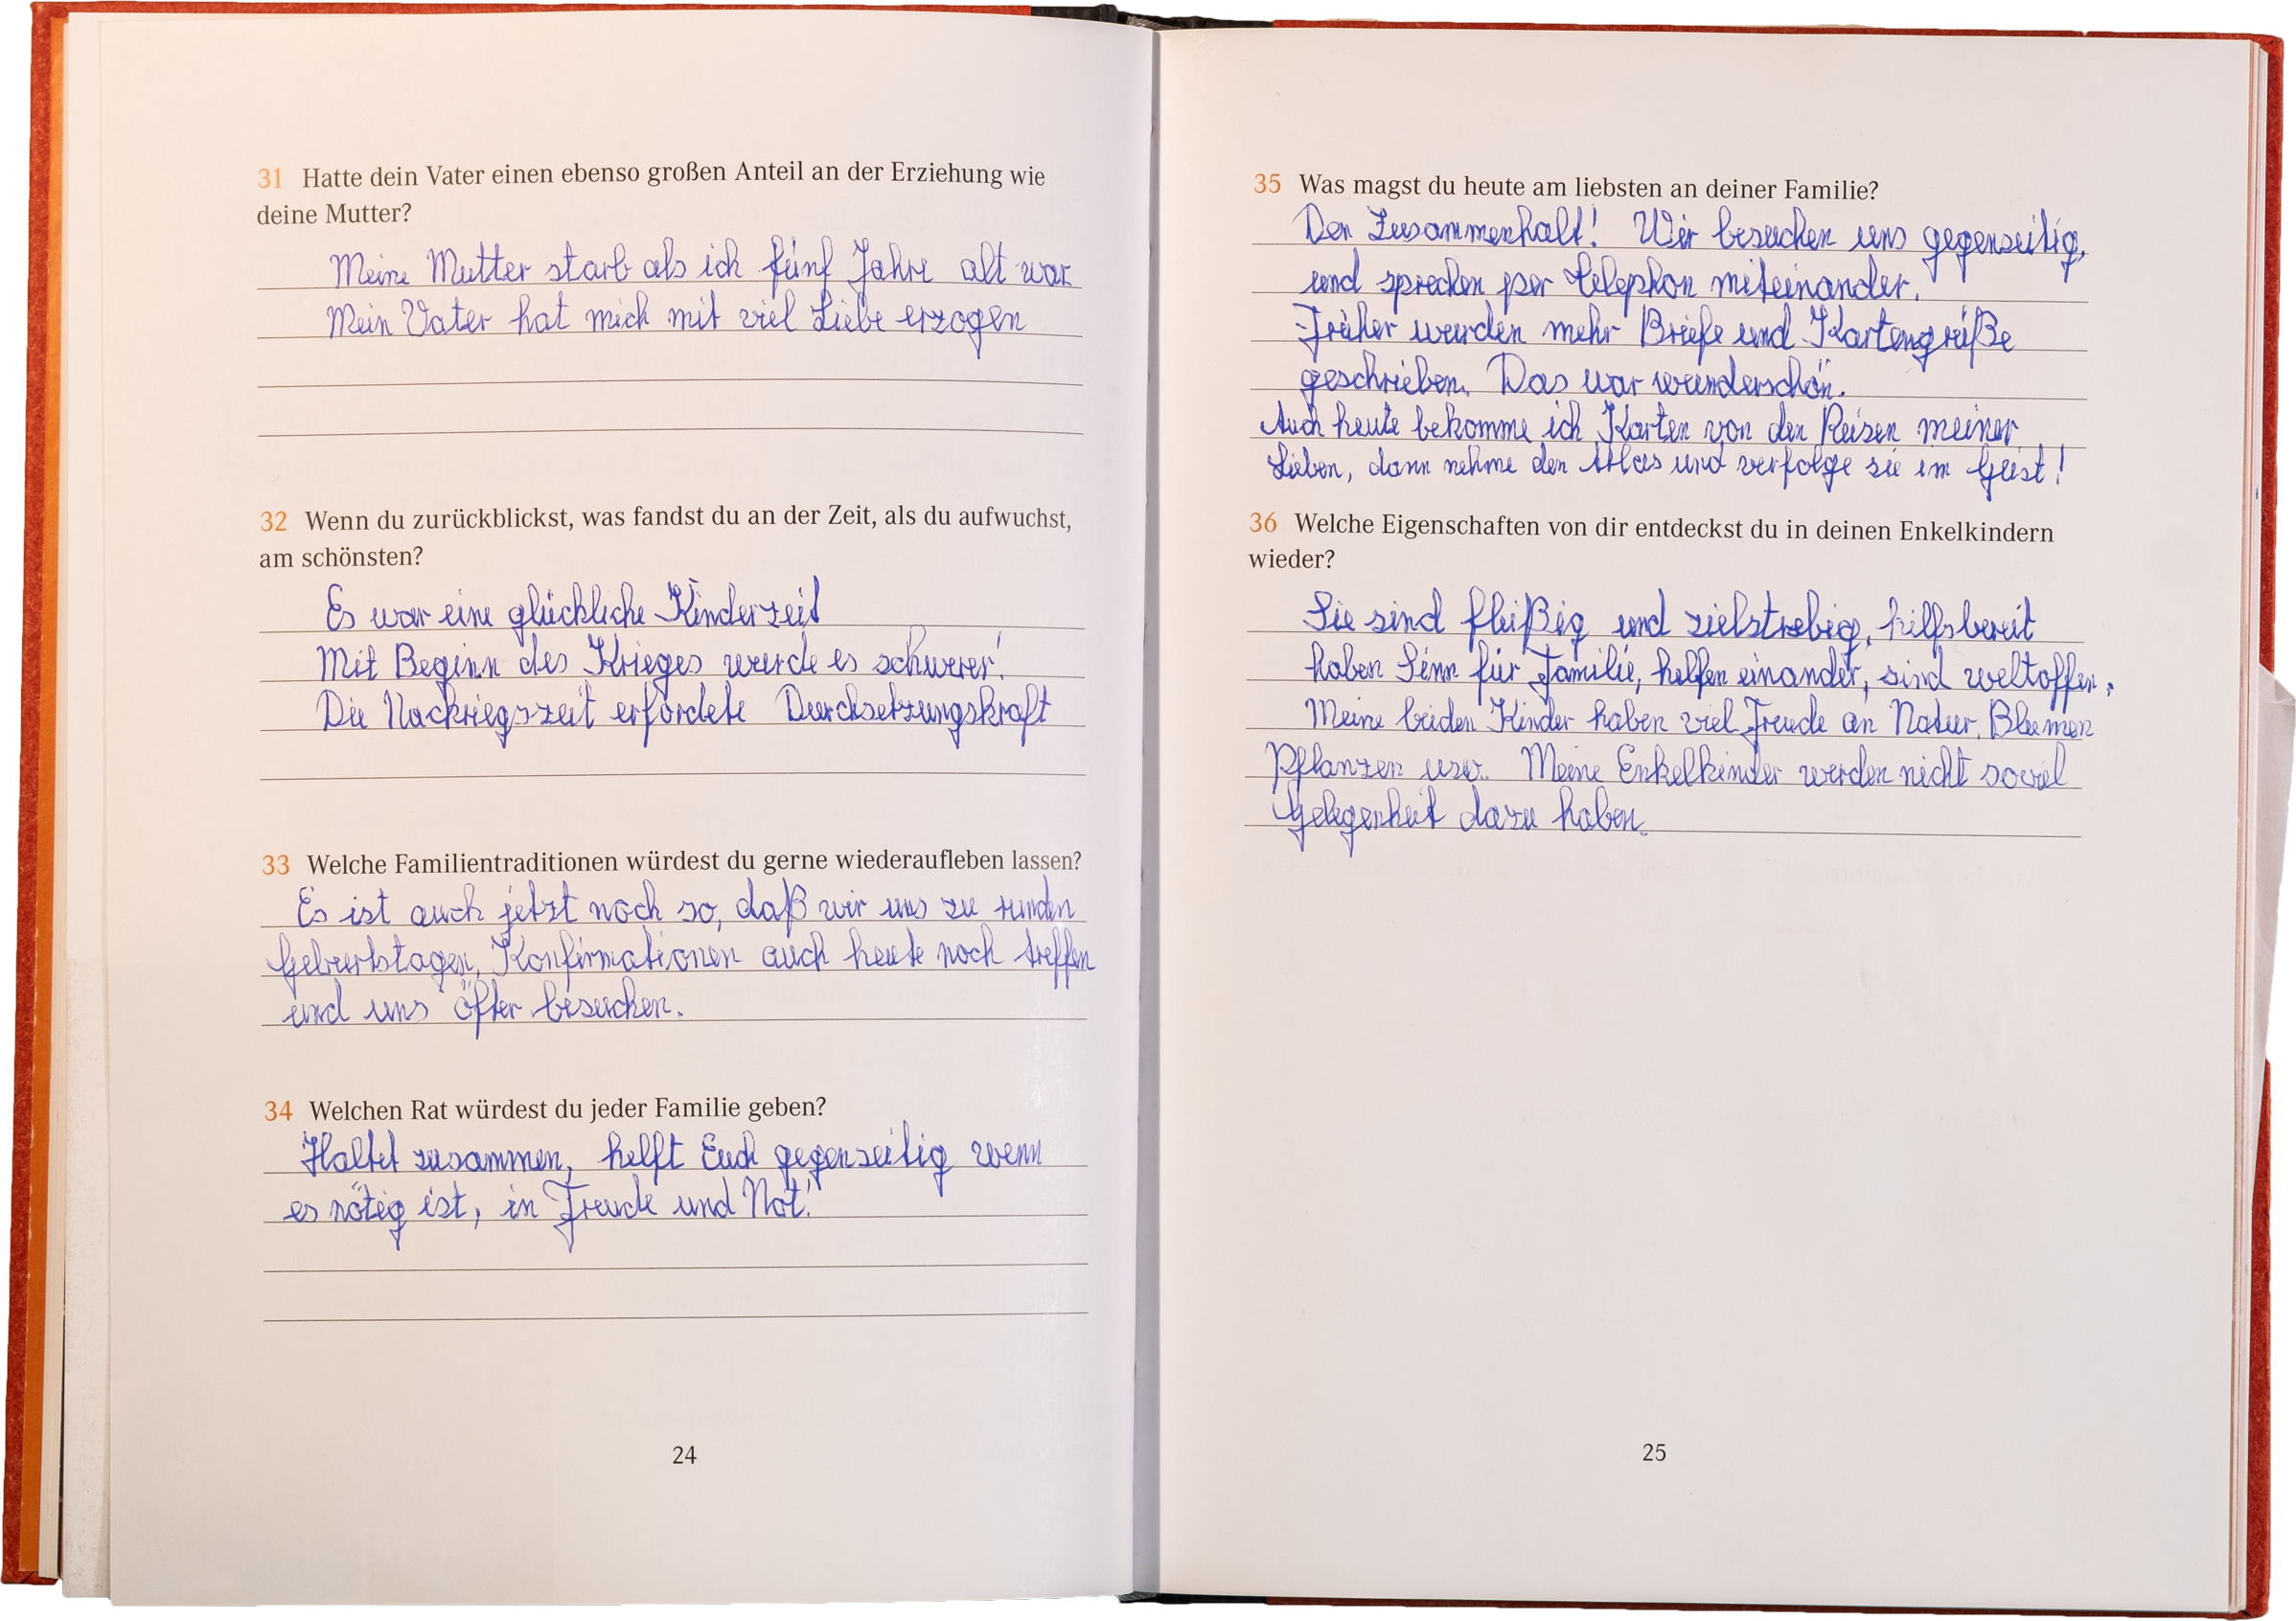 31 Hatte dein Vater einen ebenso großen Anteil an der Erziehung wie
deine Mutter?
Meine Mutter starb als ich fünf Jahre alt war.
Mein Vater hat mich mit viel Liebe erzogen
32 Wenn du zurückblickst, was fandst du an der Zeit, als du aufwuchst,
am schönsten?
Es war eine glückliche Kinderzeit
Mit Beginn des Krieges wurde es schwerer!
Die Nackriegszeit erfordete Durchsetzungskraft
33 Welche Familientraditionen würdest du gerne wiederaufleben lassen?
Es ist auch jetzt noch so, daß wir uns zu runden
Geburtstagen, Konfirmationen auch heute noch treffen
und uns öfter besuchen.
34 Welchen Rat würdest du jeder Familie geben?
Haltet zusammen, helft Euch gegenseitig wenn
es nötig ist, in Freude und Not!
24
35 Was magst du heute am liebsten an deiner Familie?
Den Zusammenhalt! Wir besuchen uns gegenseitig,
und sprechen per Telephon miteinander.
Früher wurden mehr Briefe und Kartengrüße
geschrieben. Das war wunderschön.
Auch heute bekomme ich Karten von den Reisen meiner
Lieben, dann nehme den Atlas und verfolge sie im Geist!
36 Welche Eigenschaften von dir entdeckst du in deinen Enkelkindern
wieder?
Sie sind fleißig und zielstrebig, hilfsbereit
haben Sinn für Familie, helfen einander, sind weltoffen,
Meine beiden Kinder haben viel Freude an Natur, Blumen
Pflanzen usw. Meine Enkelkinder werden nicht soviel
Gelegenheit dazu haben.
25